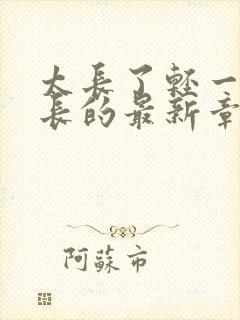 太長了輕一
長的最新章
阿蘇市